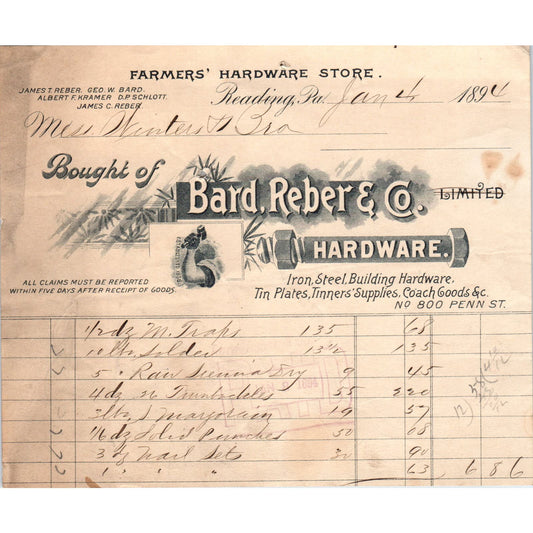 FARMERS' HARDWARE STORE.
JAMES T. REBER. GEO. W. BARD.
ALBERT F. KRAMER D.P. SCHLOTT.
JAMES C. REBER.
Reading, Pa. Jan 4 1894
Mess Winters & Bro
Bought of
Bard, Reber & Co. LIMITED
HARDWARE.
ALL CLAIMS MUST BE REPORTED
WITHIN FIVE DAYS AFTER RECEIPT OF GOODS.
Iron, Steel, Building Hardware,
Tin Plates, Tinners' Supplies, Coach Goods &c.
No 800 PENN ST.
1/2 dz M. Traps 135 68
10 lbs Solder 13 1/2 135
5 " Raw Sienna Dry 9 45
4 dz 55 220
3 lbs 19 57
1/6 dz Solid Punches 50
3 Nail Sets 30 90
" " " 63 6 86